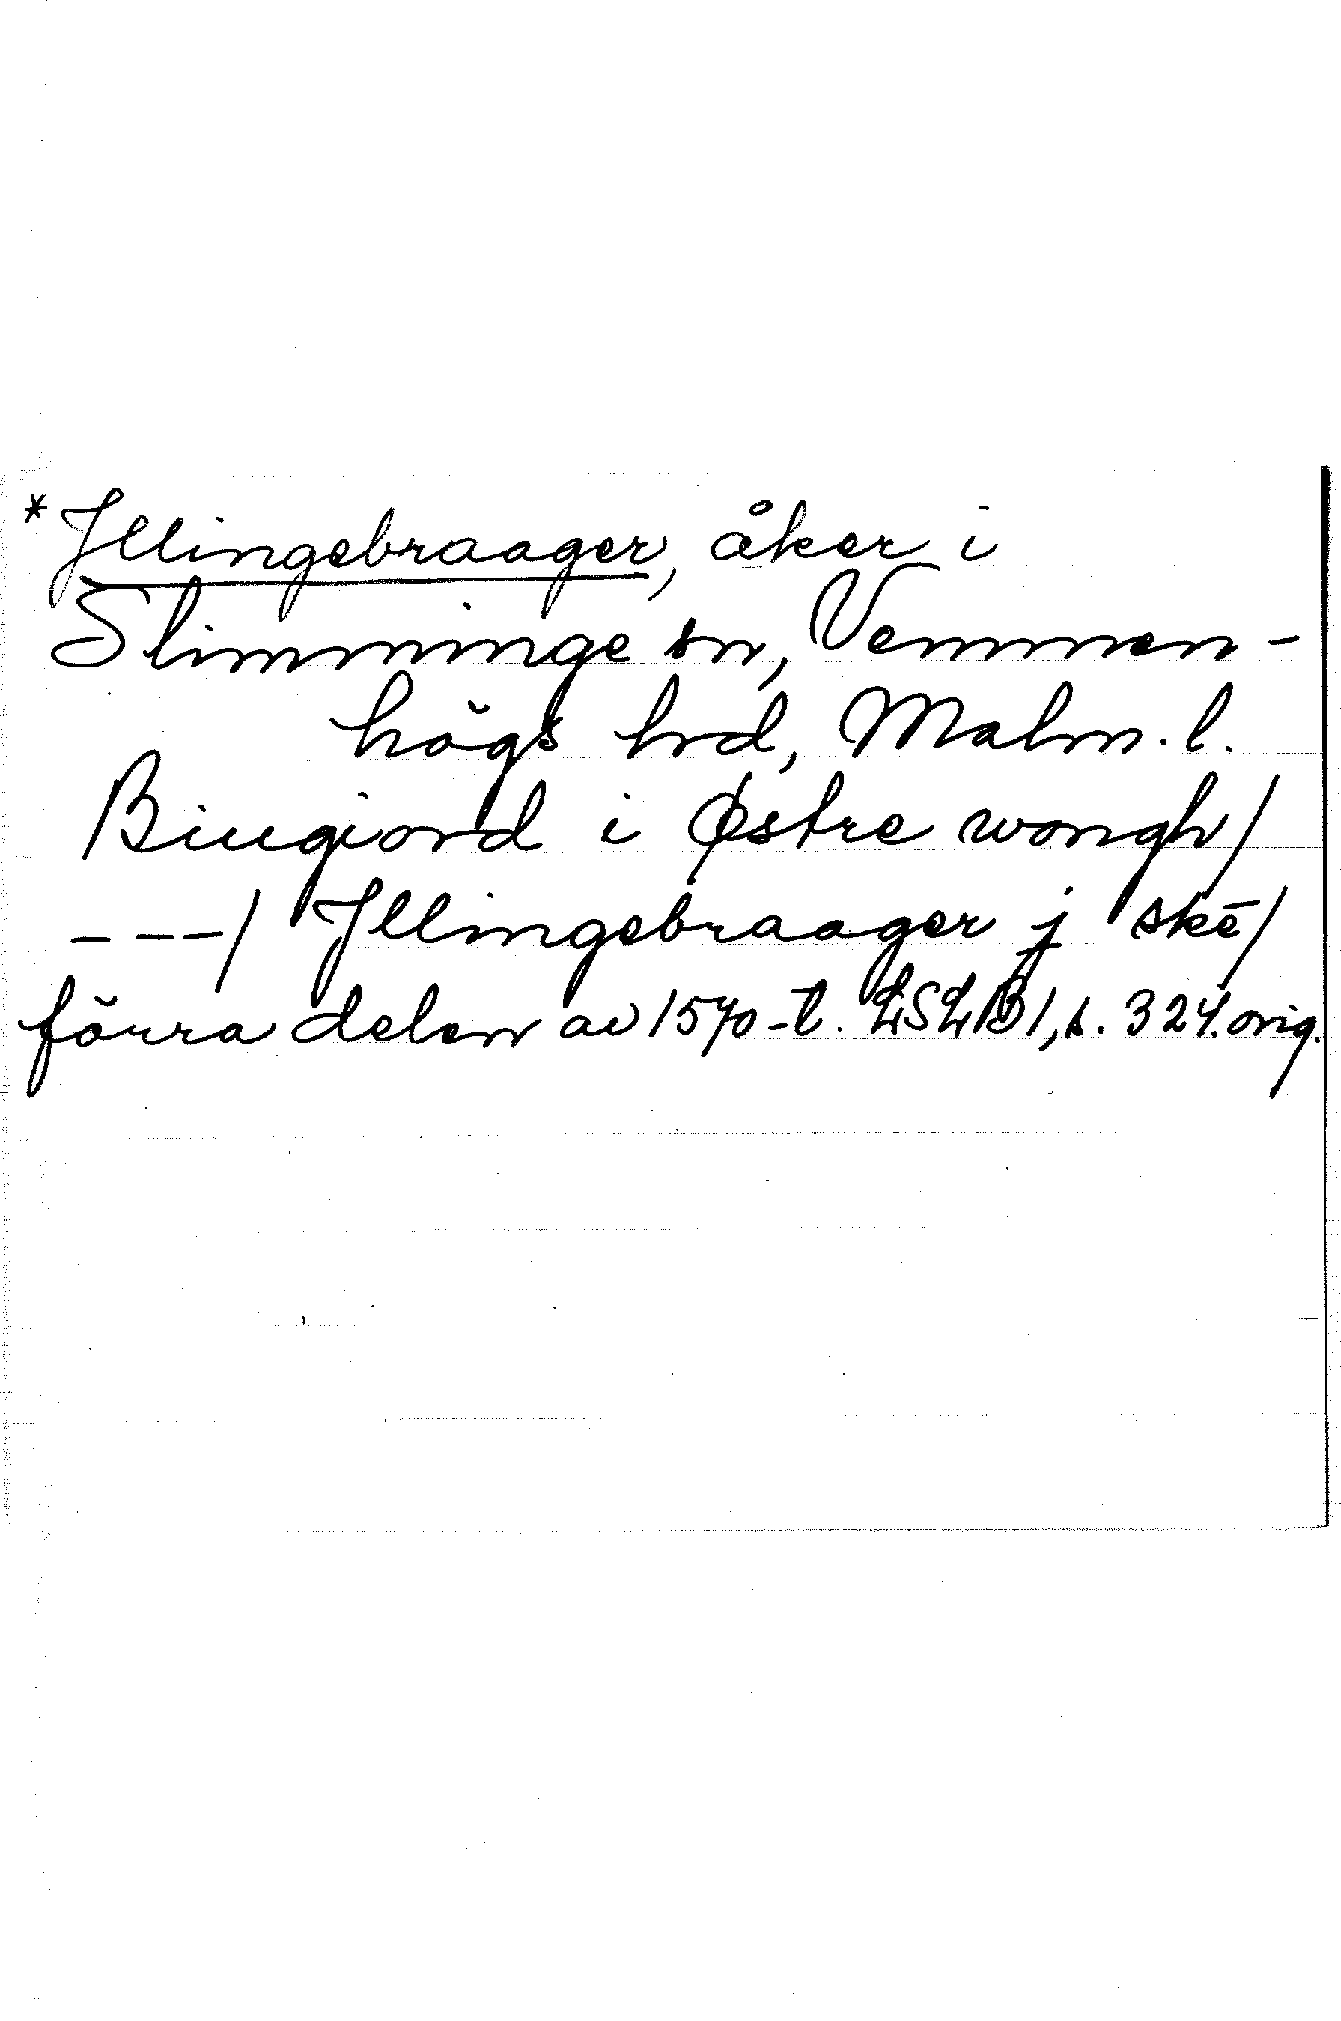 *Jllingebraager, åker i
Slimminge sn, Vemmen-
högs hrd, Malm. l.
Biugiord i Østre wongh/
---/ Jllingebraager j skē/
förra delen av 1570-t. LSLB 1, s. 324. orig.